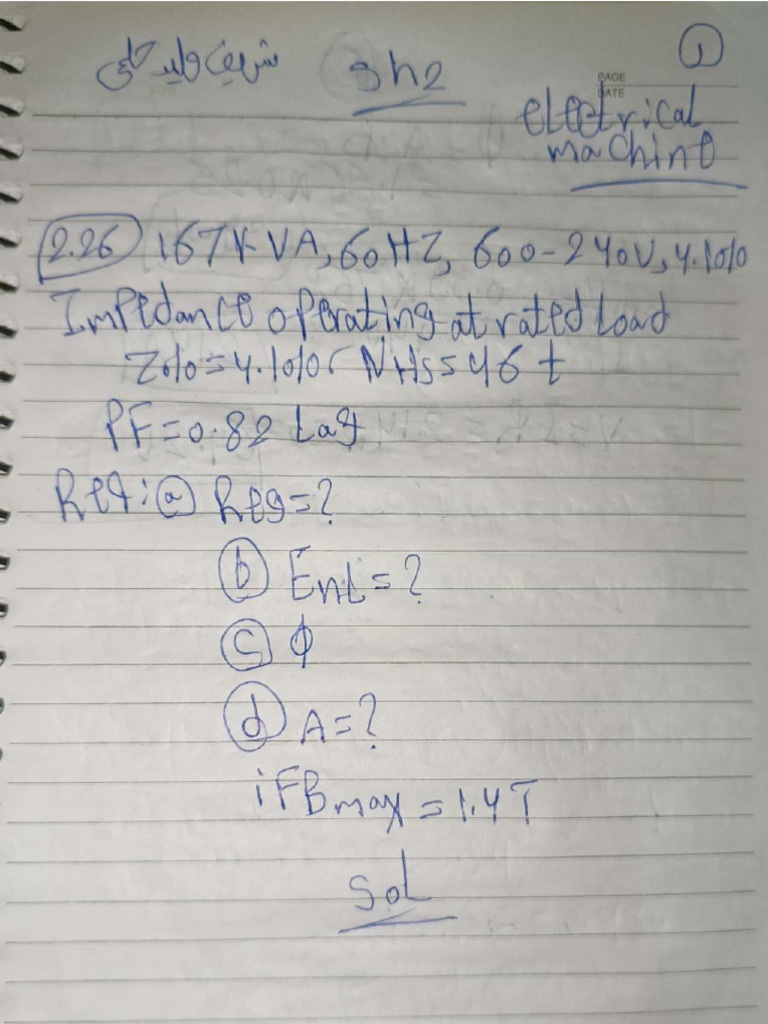 ①
شريف وليد حلمي sh2
PAGE
DATE
electrical
machine
2.26 167KVA, 60HZ, 600-240V, 4.1%
Impedance operating at rated Load
Z%=4.1%, NHs=46 t
PF=0.82 Lag
Req: ⓐ Reg=?
ⓑ EnL=?
ⓒ ϕ
ⓓ A=?
iF Bmax=1.4T
Sol